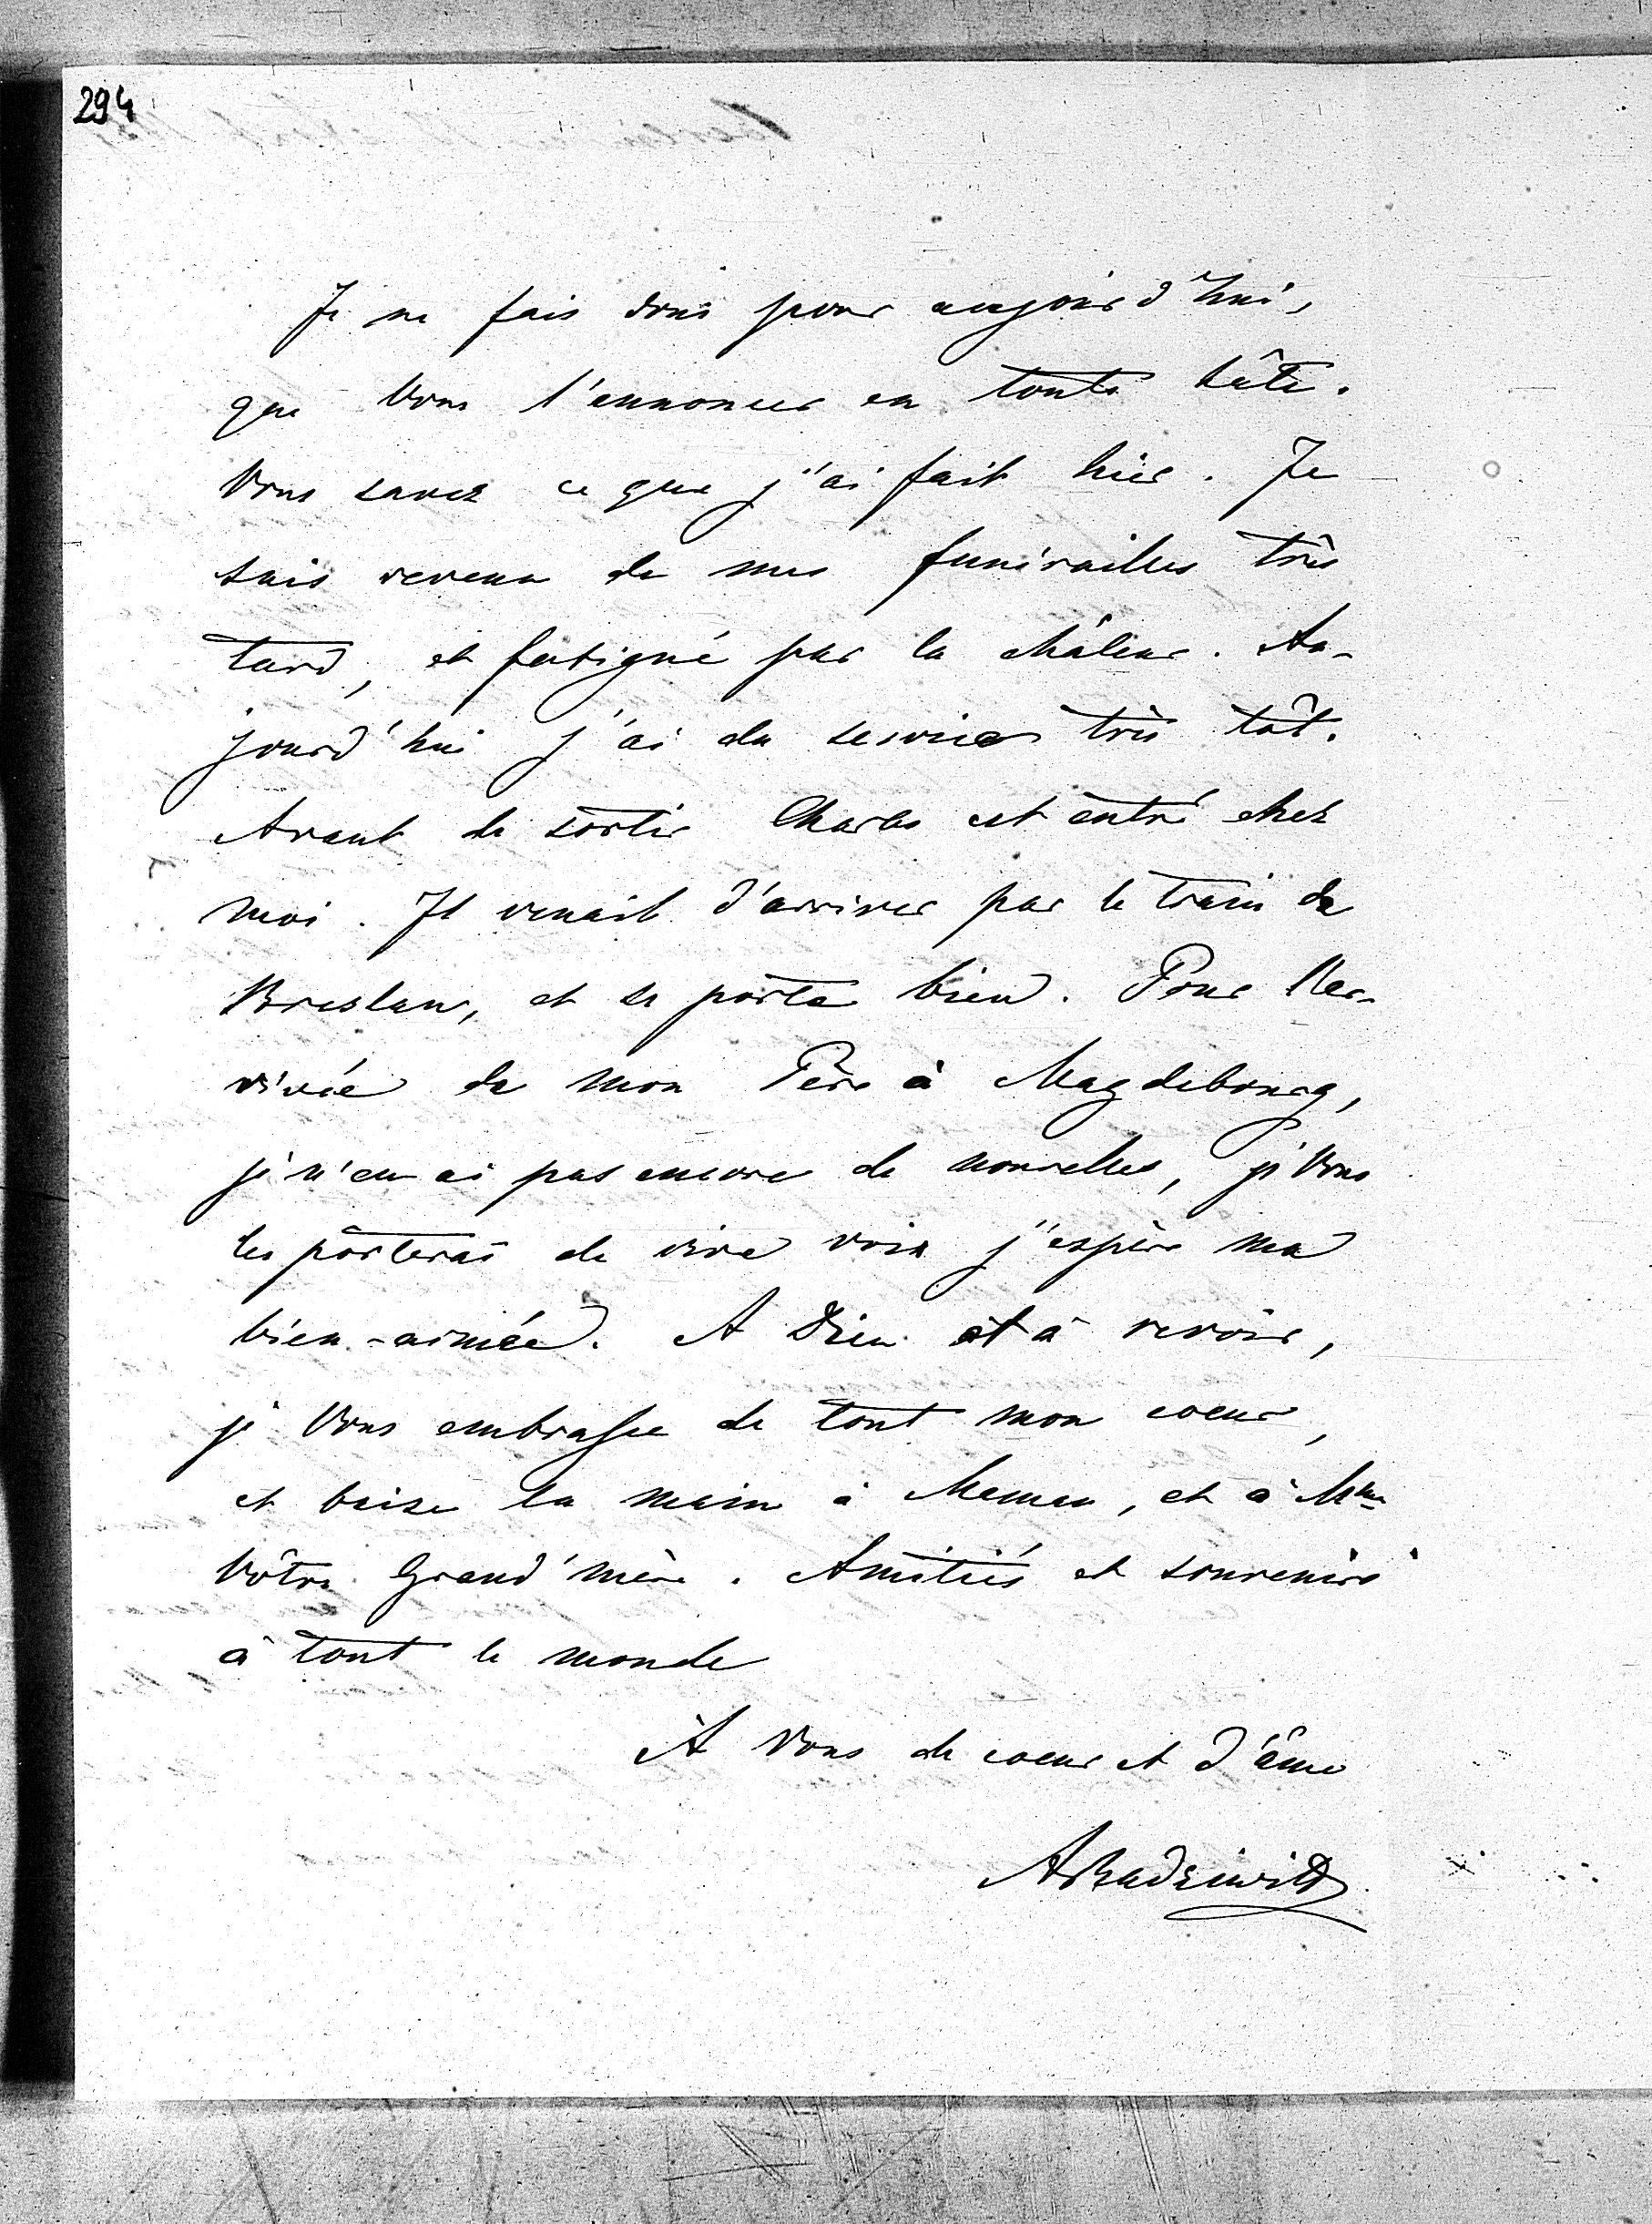 294
Je ne fais donc pour aujourd'hui,
que Vous l'annoncer en toute hâte.
Vous savez ce que j'ai fait hier. Je
suis revenu de mes funérailles très
tard, et fatigué par la châleur. Au-
jourd'hui j'ai du service très tôt.
Avant de sortir Charles est entré chez
moi. Il venait d'arriver par le train de
Breslau, et se porte bien. Pour l'ar-
rivée de mon Père à Magdebourg,
je n'en ai pas encore de nouvelles, je Vous
les porterai de vive voix j'espère ma
bien-aimée. A Dieu et à revoir,
je Vous embrasse de tout mon coeur,
et baise la main à Maman, et à Mme
Vôtre Grand'mère. Amitiés et souvenirs
à tout le monde
À Vous de coeur et d'âme
ARadziwill